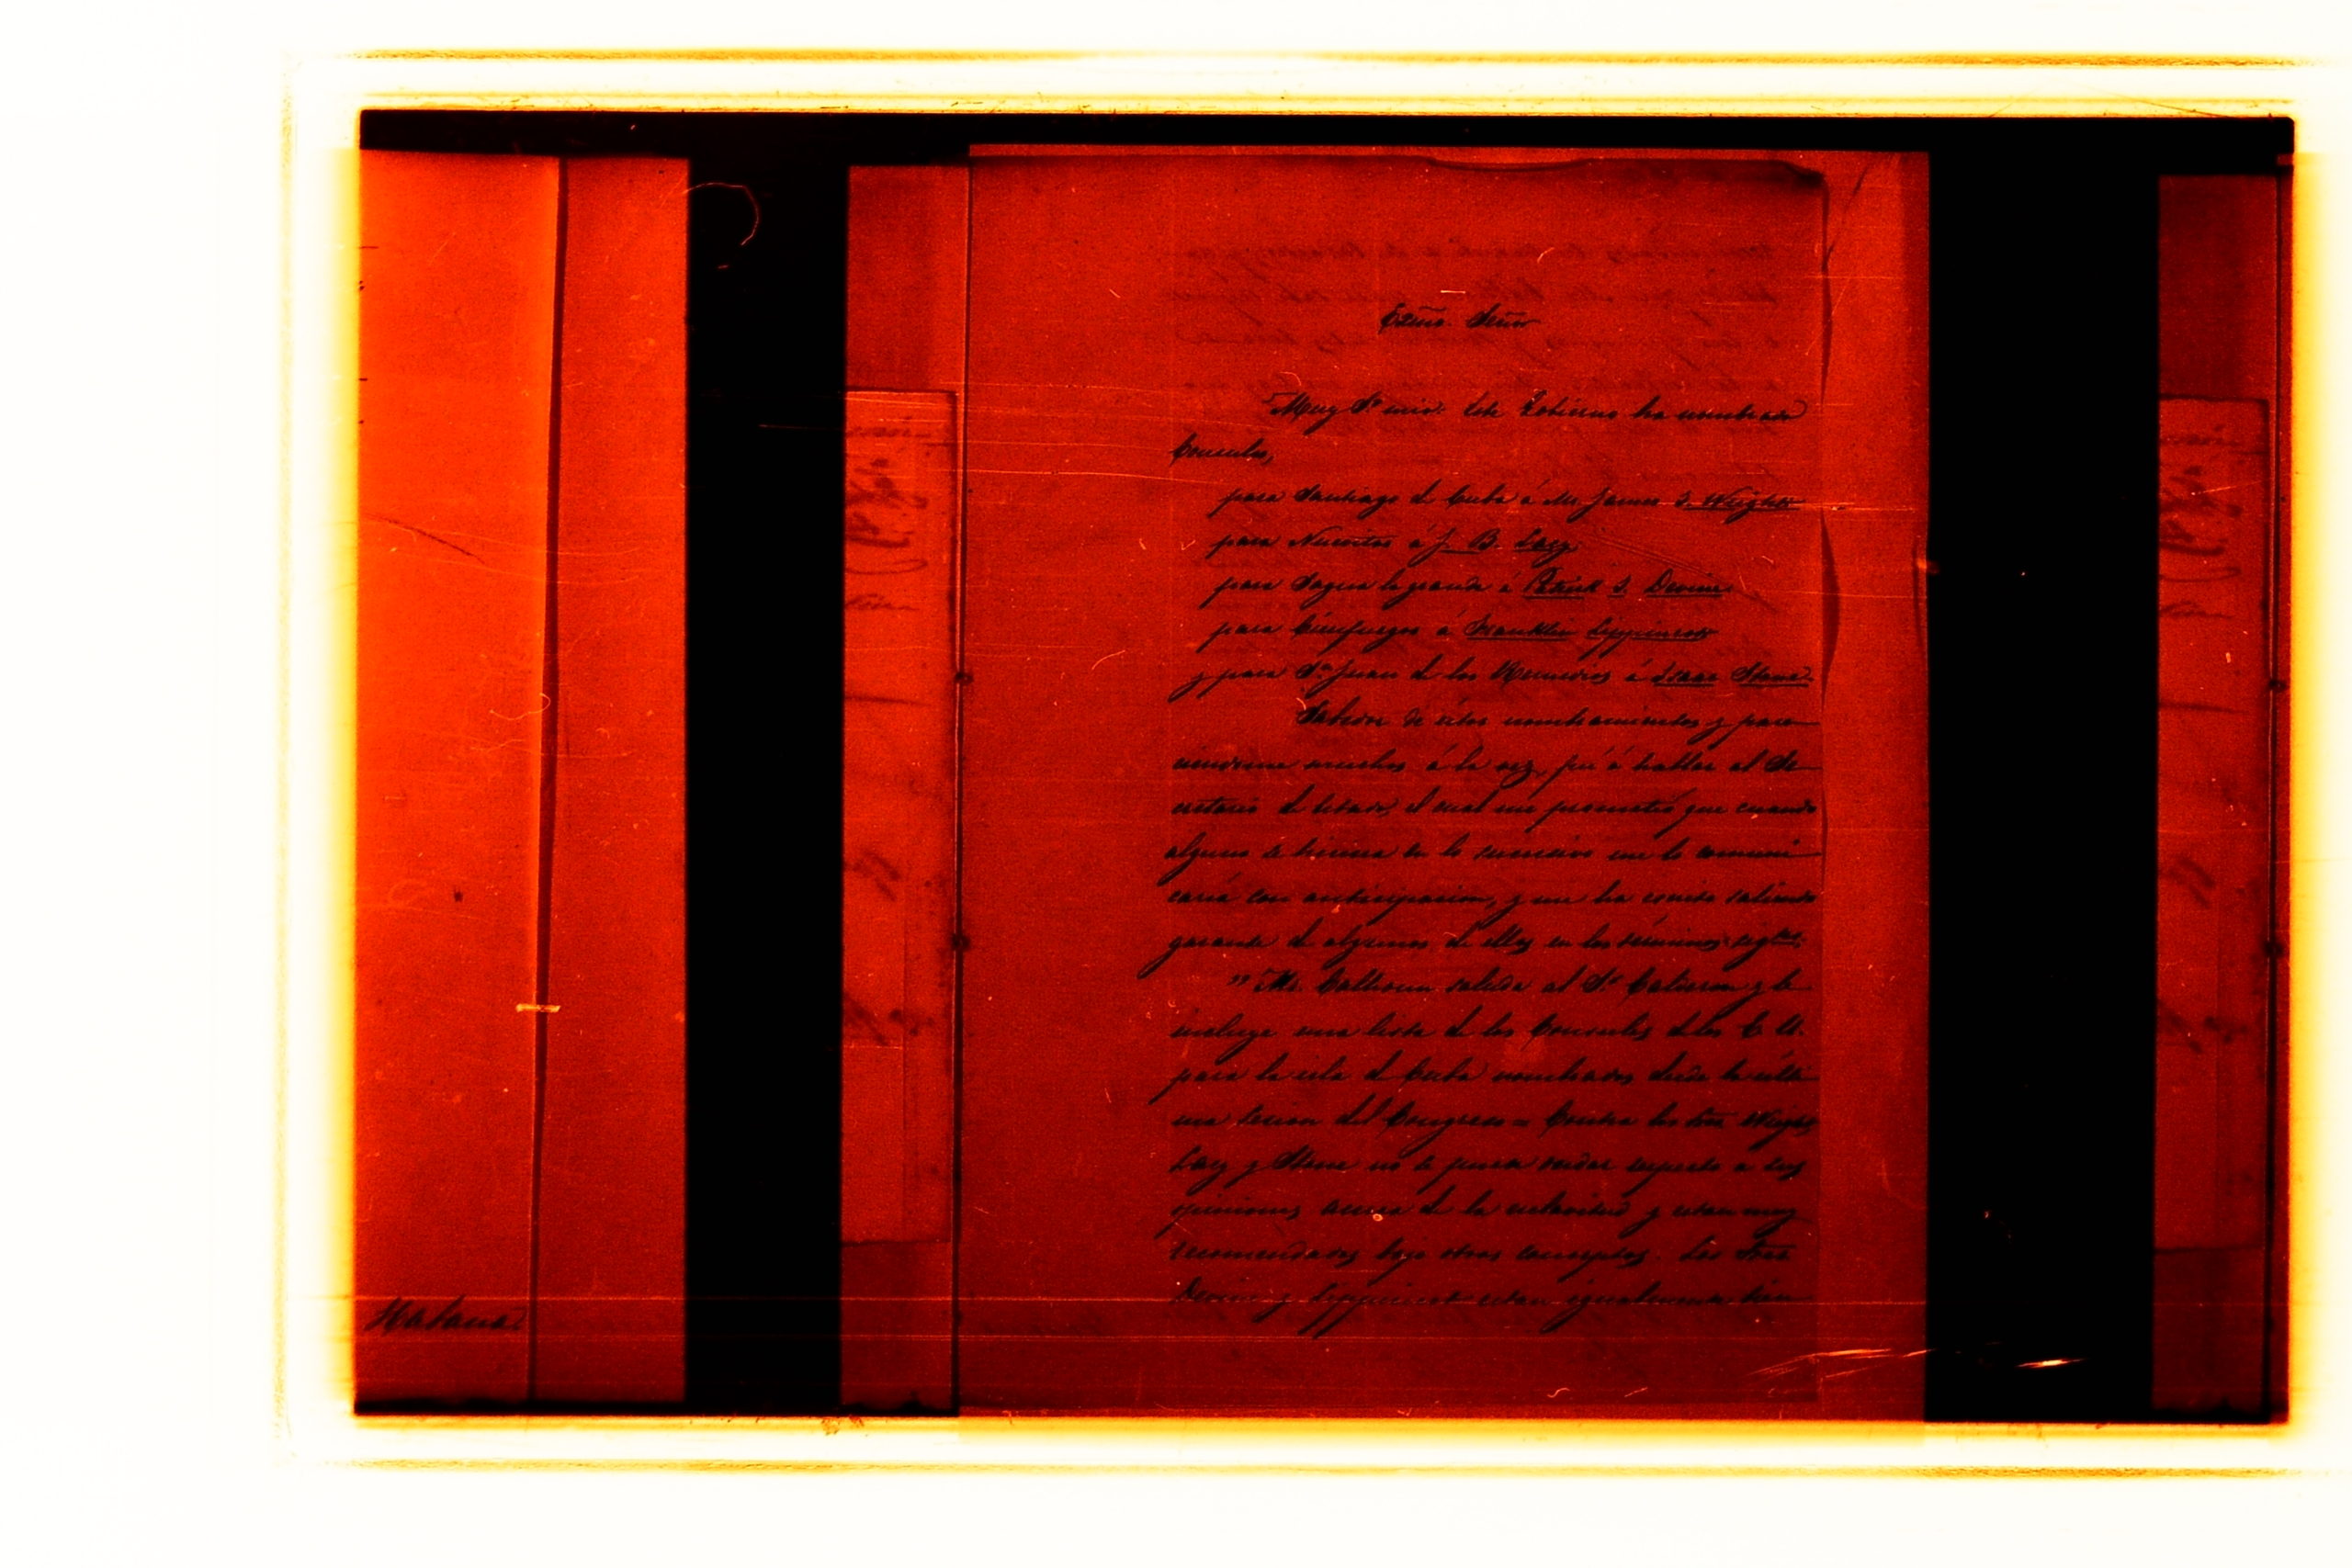 Exmo. Señor
Muy Sr. mio: Este Gobierno ha nombrado
Consules,
para Santiago de Cuba á Mr James J. Wright
para Nuevitas á J. B. Lacy
para Sagua la grande á Patrick J. Devine
para Cienfuegos á Franklin Lippincott
y para Sn Juan de los Remedios á Isaac Stone.
Sabedor de estos nombramientos y pare-
ciendome muchos á la vez, fui á hablar al Se-
cretario de Estado, el cual me prometió que cuando
alguno se hiciera en lo sucesivo me lo comuni-
caria con anticipacion, y me ha escrito saliendo
garante de algunos de ellos en los términos sigtes.
"Mr. Calhoun saluda al Sr. Calderon y le
incluye una lista de los Consules de los E. U.
para la isla de Cuba nombrados desde la últi-
ma sesion del Congreso = Contra los Sres Wright
Lacy y Stone no se puede dudar respecto a sus
opiniones acerca de la esclavitud y estan muy
recomendados bajo otros conceptos. Los Sres
Devine y Lippincott estan igualmente bien
Habana